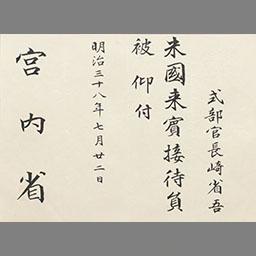 式部官長崎省吾
米國来賓接待員
被仰付
明治三十八年七月廿二日
宮内省